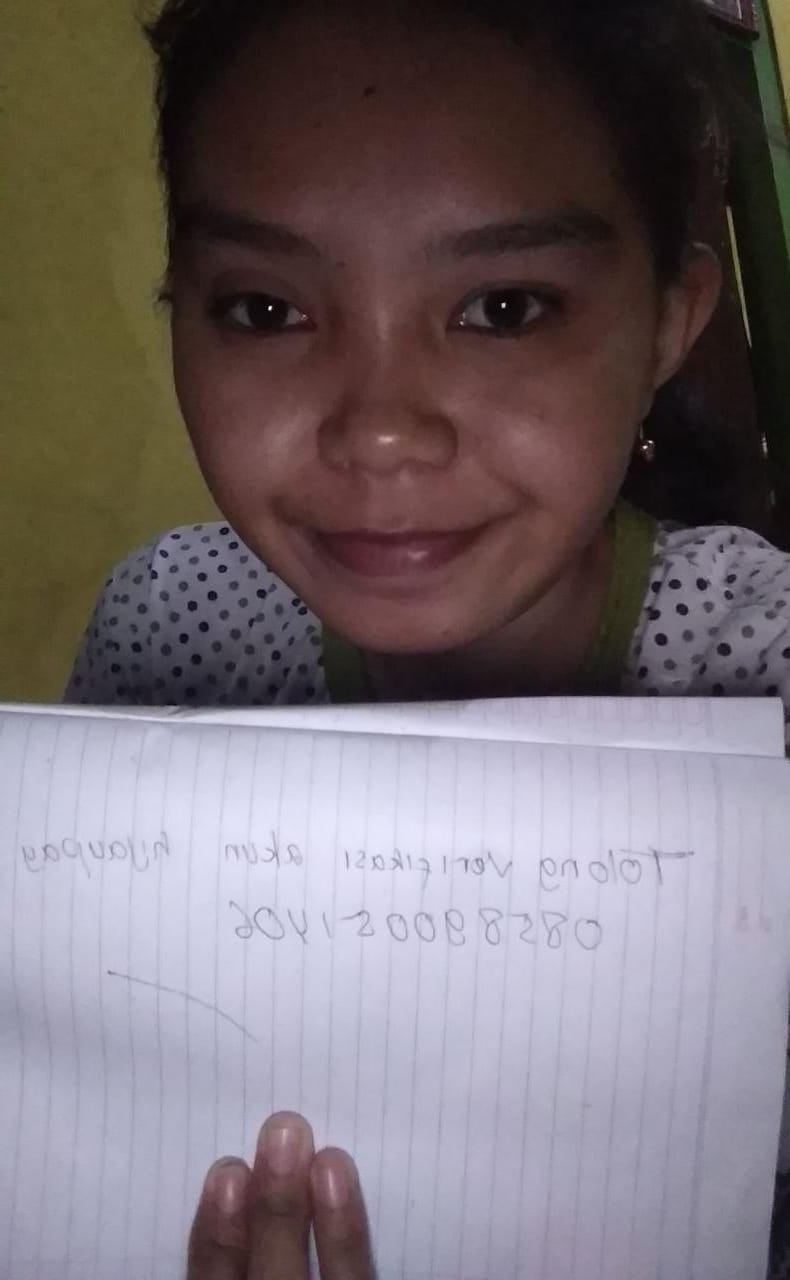 Tolong verifikasi akun hijaupay
085890051406